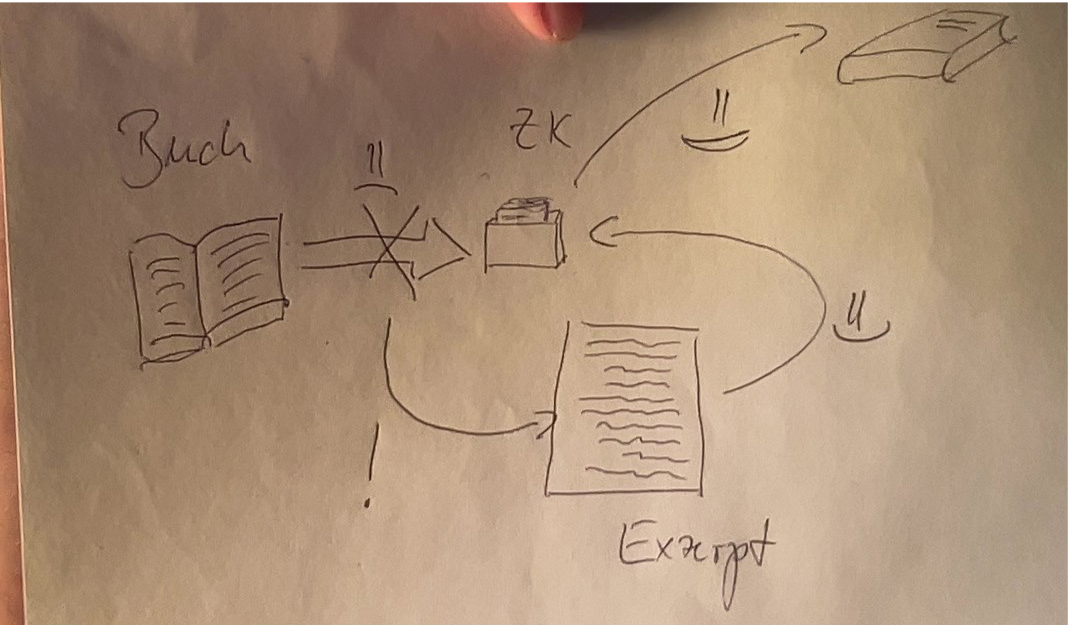 Buch
ZK
!
Exzerpt